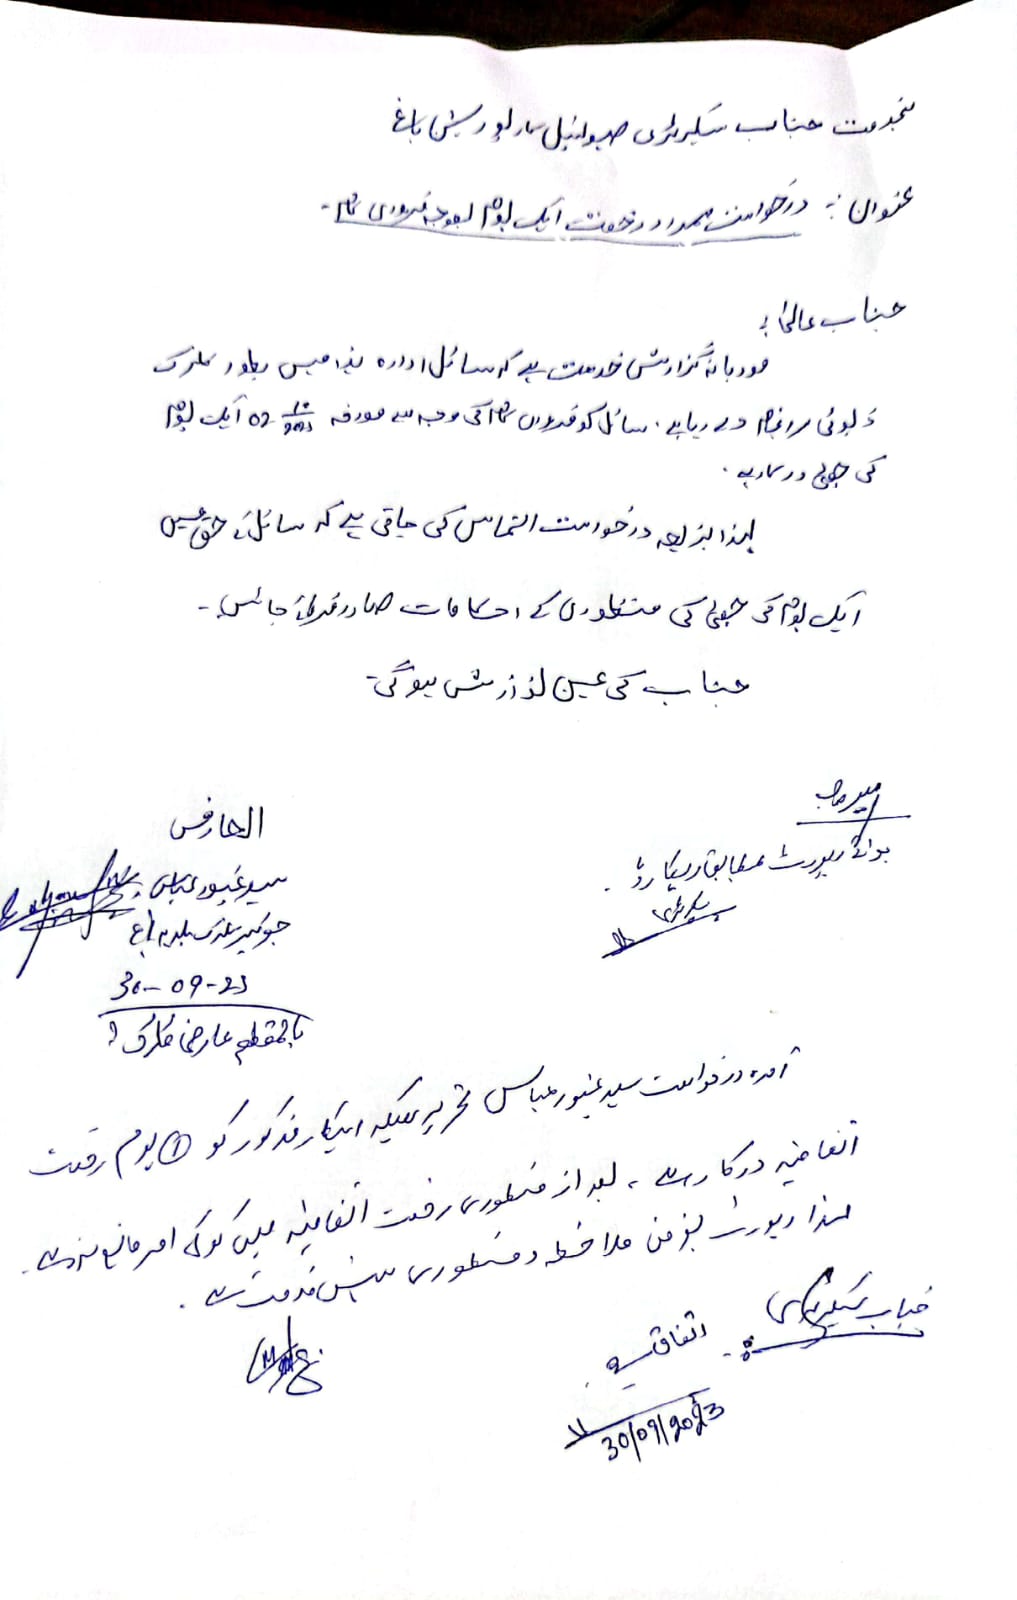 بخدمت جناب سیکریٹری میونسپل کارپوریشن باغ
عنوان :- درخواست بمراد رخصت ایک یوم بوجہ ضروری کام -
جناب عالی !
مودبانہ گزارش خدمت ہے کہ سائل ادارہ ہذا میں بطور کلرک
ڈیوٹی سرانجام دے رہا ہے . سائل کو ضروری کام کی وجہ سے مورخہ 02 10/2023 ایک یوم
کی چھٹی درکار ہے .
لہذا بذریعہ درخواست التماس کی جاتی ہے کہ سائل کے حق میں
ایک یوم کی چھٹی کی منظوری کے احکامات صادر فرمائے جائیں -
جناب کی عین نوازش ہوگی -
العارض
سید غیور عباس
جونیئر کلرک بلدیہ باغ
30-09-23
میر صاحب
برائے رپورٹ مطابق ریکارڈ .
سیکرٹری
عارضی کلرک
آمدہ درخواست سید غیور عباس تحریر ہیکہ اہلکار مذکور کو ① یوم رخصت
اتفاقیہ درکار ہے ، بعد از منظوری رخصت اتفاقیہ میں کوئی امر مانع نہ ہے .
لہذا رپورٹ بغرض ملاحظہ و منظوری پیش خدمت ہے .
جناب سیکریٹری
اتفاق ہے
30/09/2023